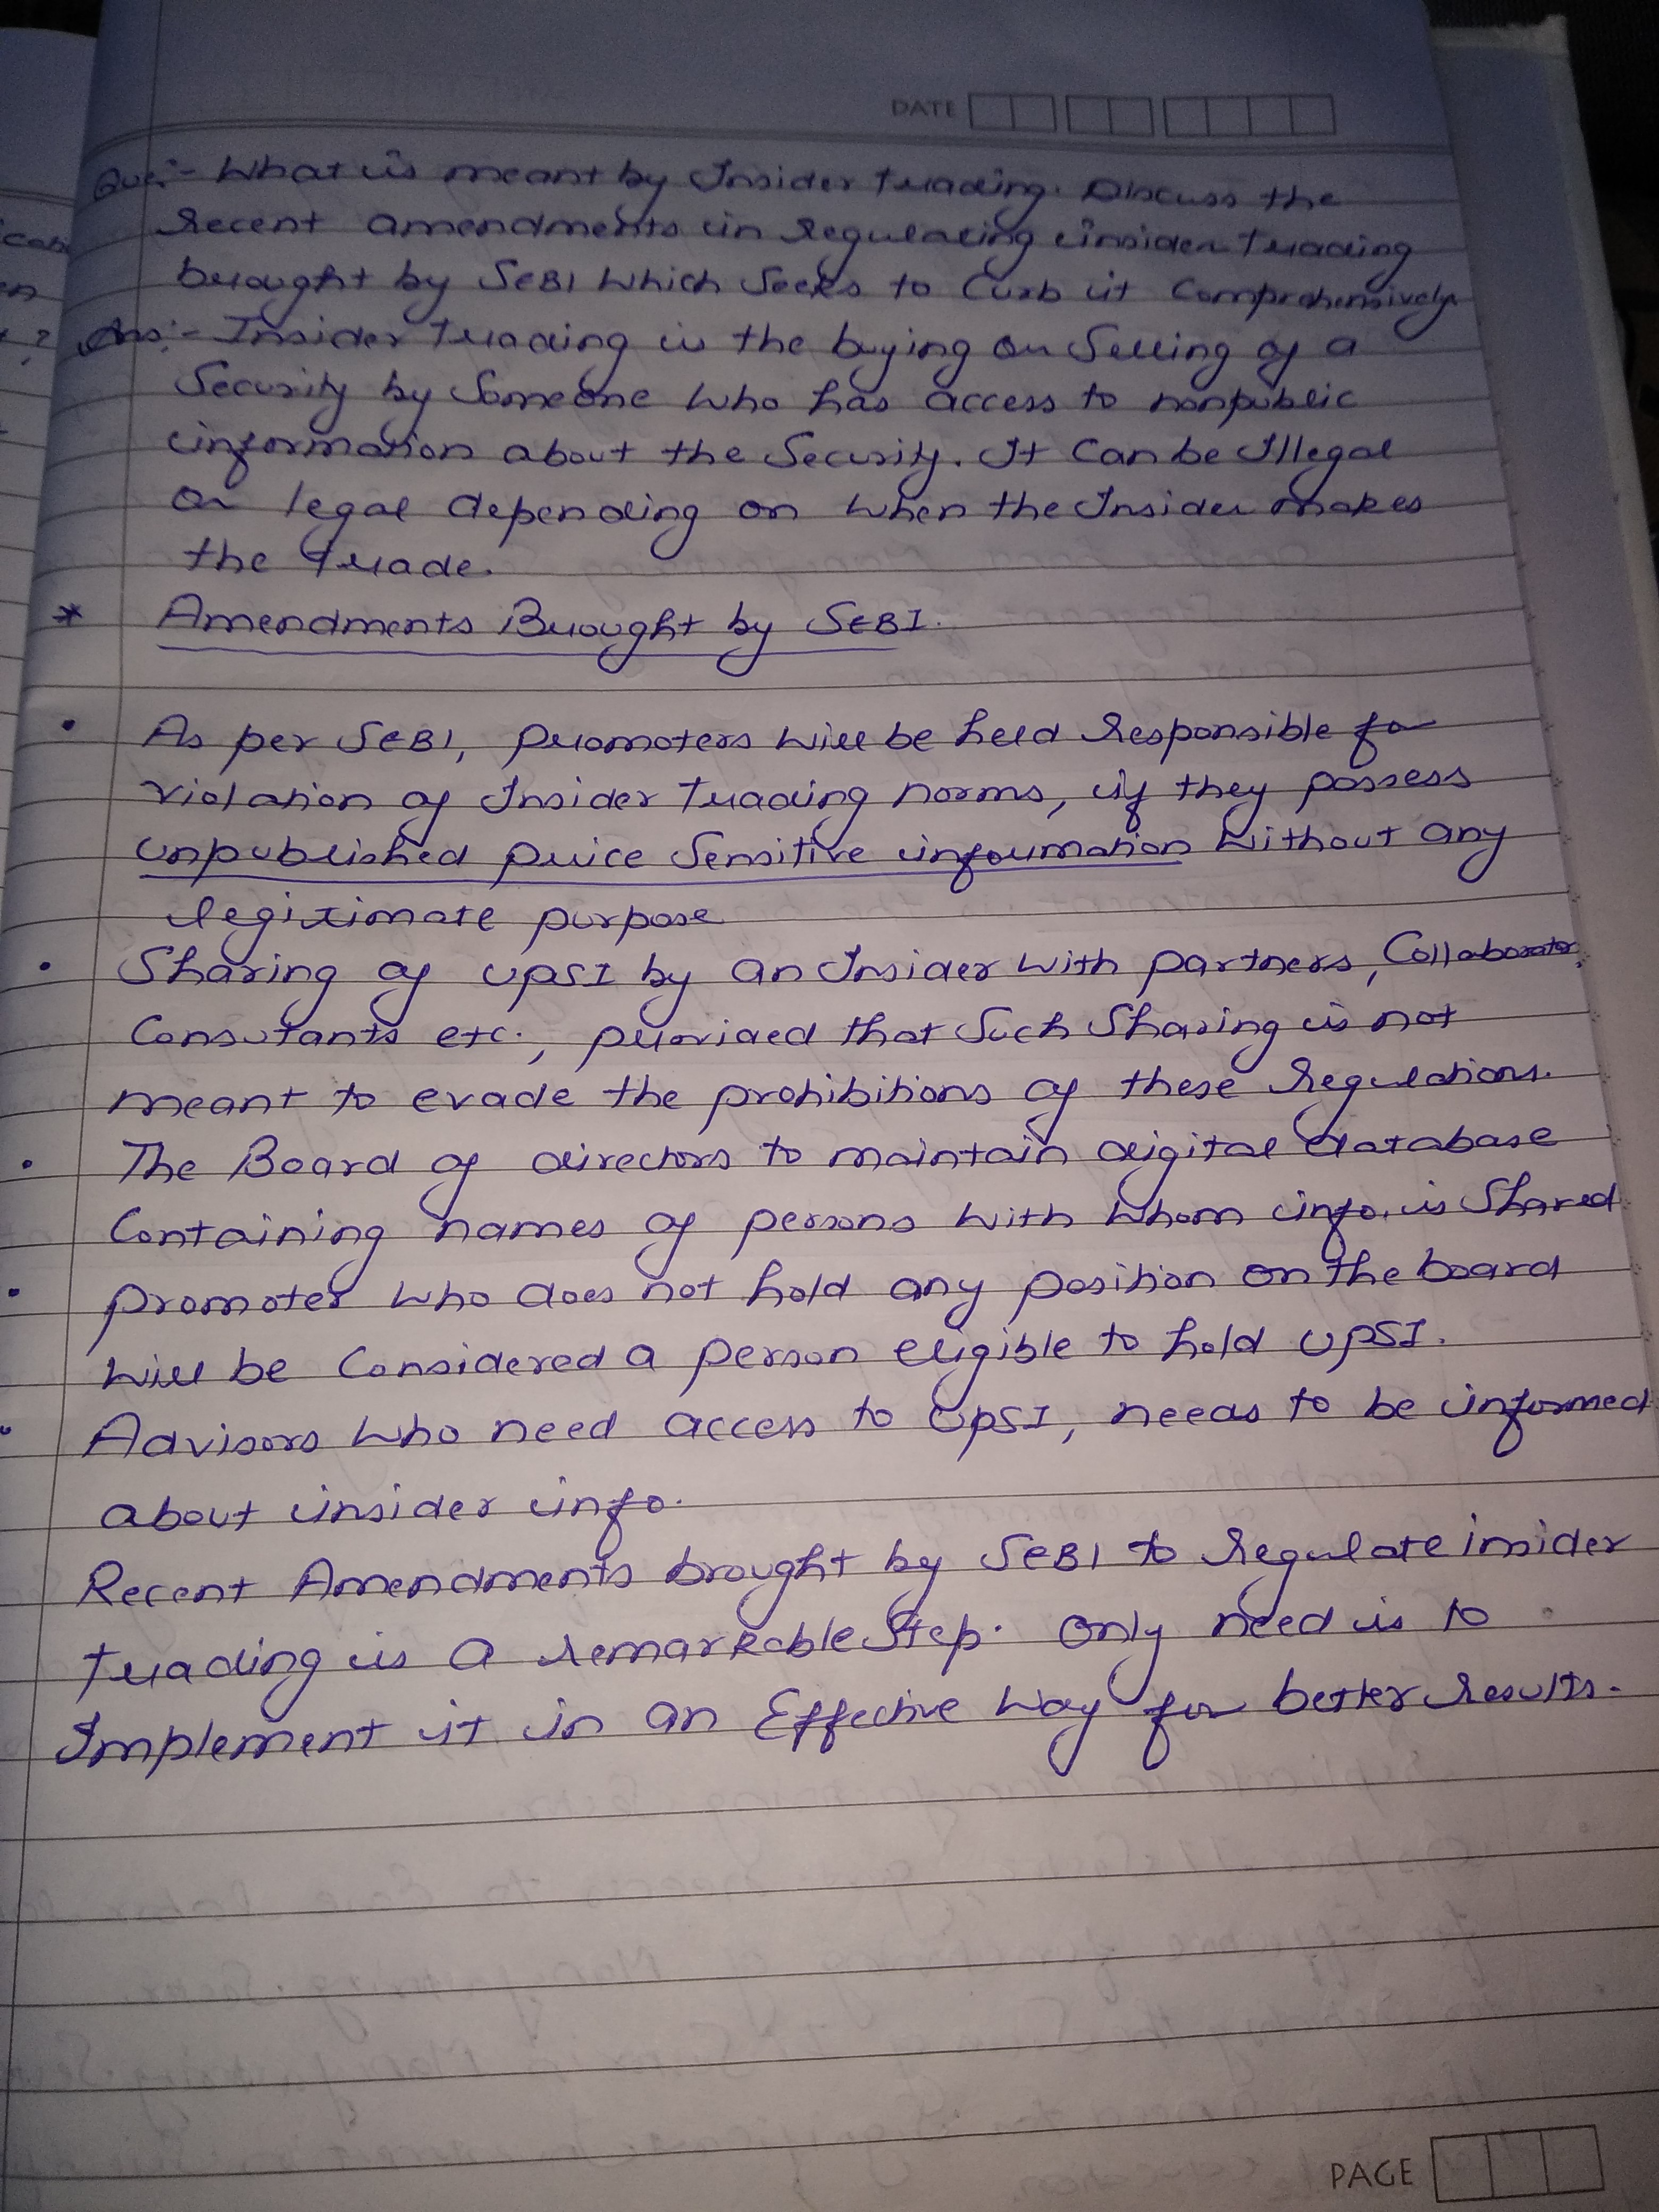 DATE
Que:- What is meant by Insider trading. Discuss the
recent amendments in regulating insider trading
brought by SEBI which seeks to curb it comprehensively
Ans:- Insider trading is the buying or selling of a
Security by someone who has access to nonpublic
information about the security. It can be Illegal
or legal depending on when the Insider makes
the trade.
* Amendments Brought by SEBI.
• As per SEBI, promoters will be held responsible for
violation of Insider trading norms, if they possess
unpublished price sensitive information without any
legitimate purpose
• Sharing of UPSI by an Insider with partners, Collaborator,
Consutants etc., provided that such sharing is not
meant to evade the prohibitions of these regulations.
• The Board of directors to maintain digital database
Containing names of persons with whom info. is Shared
• promoter who does not hold any position on the board
will be Considered a person eligible to hold UPSI.
• Advisors who need access to UPSI, needs to be informed
about insider info.
Recent Amendments brought by SEBI to regulate insider
trading is a remarkable Step. Only need is to
Implement it in an Effective way for better results.
PAGE